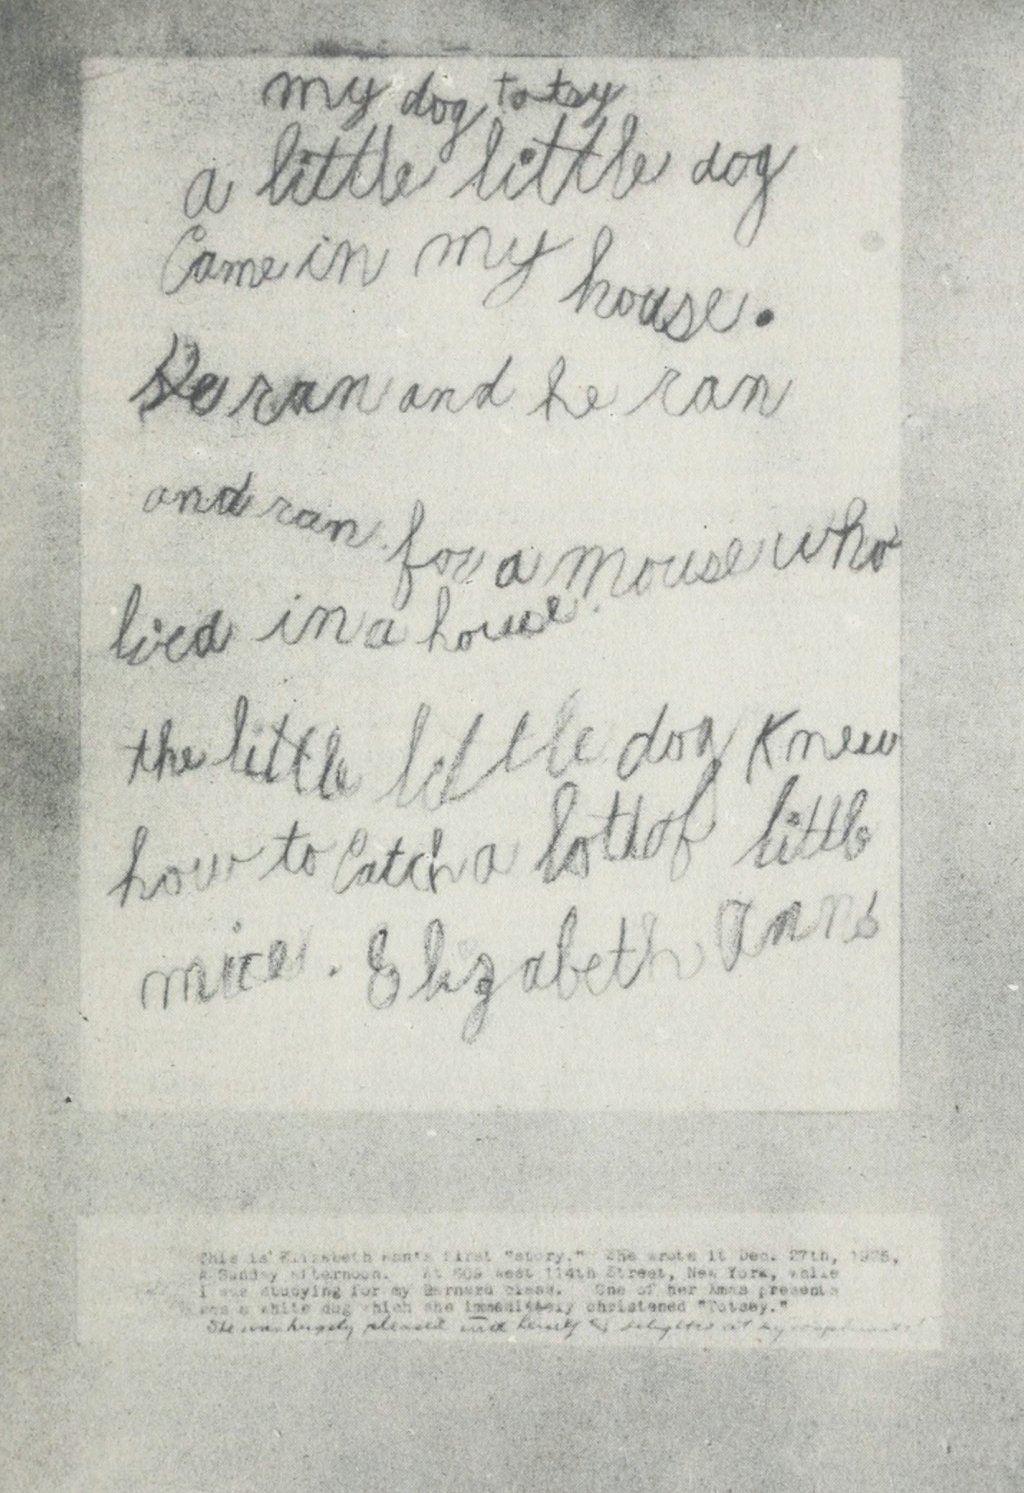 my dog totsy
a little little dog
Came in my house.
He ran and he ran
and ran for a mouse who
lied in a house.
the little little dog knew
how to Catch a lot of little
mice. Elizabeth Anne
This is Elizabeth Ann's first "story." She wrote it Dec. 27th, 1925,
A Sunday afternoon. At 609 West 114th Street, New York, while
I was studying for my Barnard class. One of her Xmas presents
was a white dog which she immediately christened "Totsey."
She was hugely pleased with herself & delighted at my